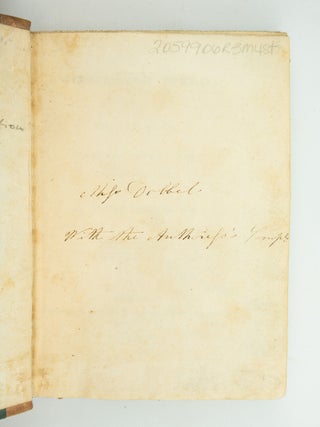 2059906RBMust
Miss Dobbel.
With the Authress's Compts